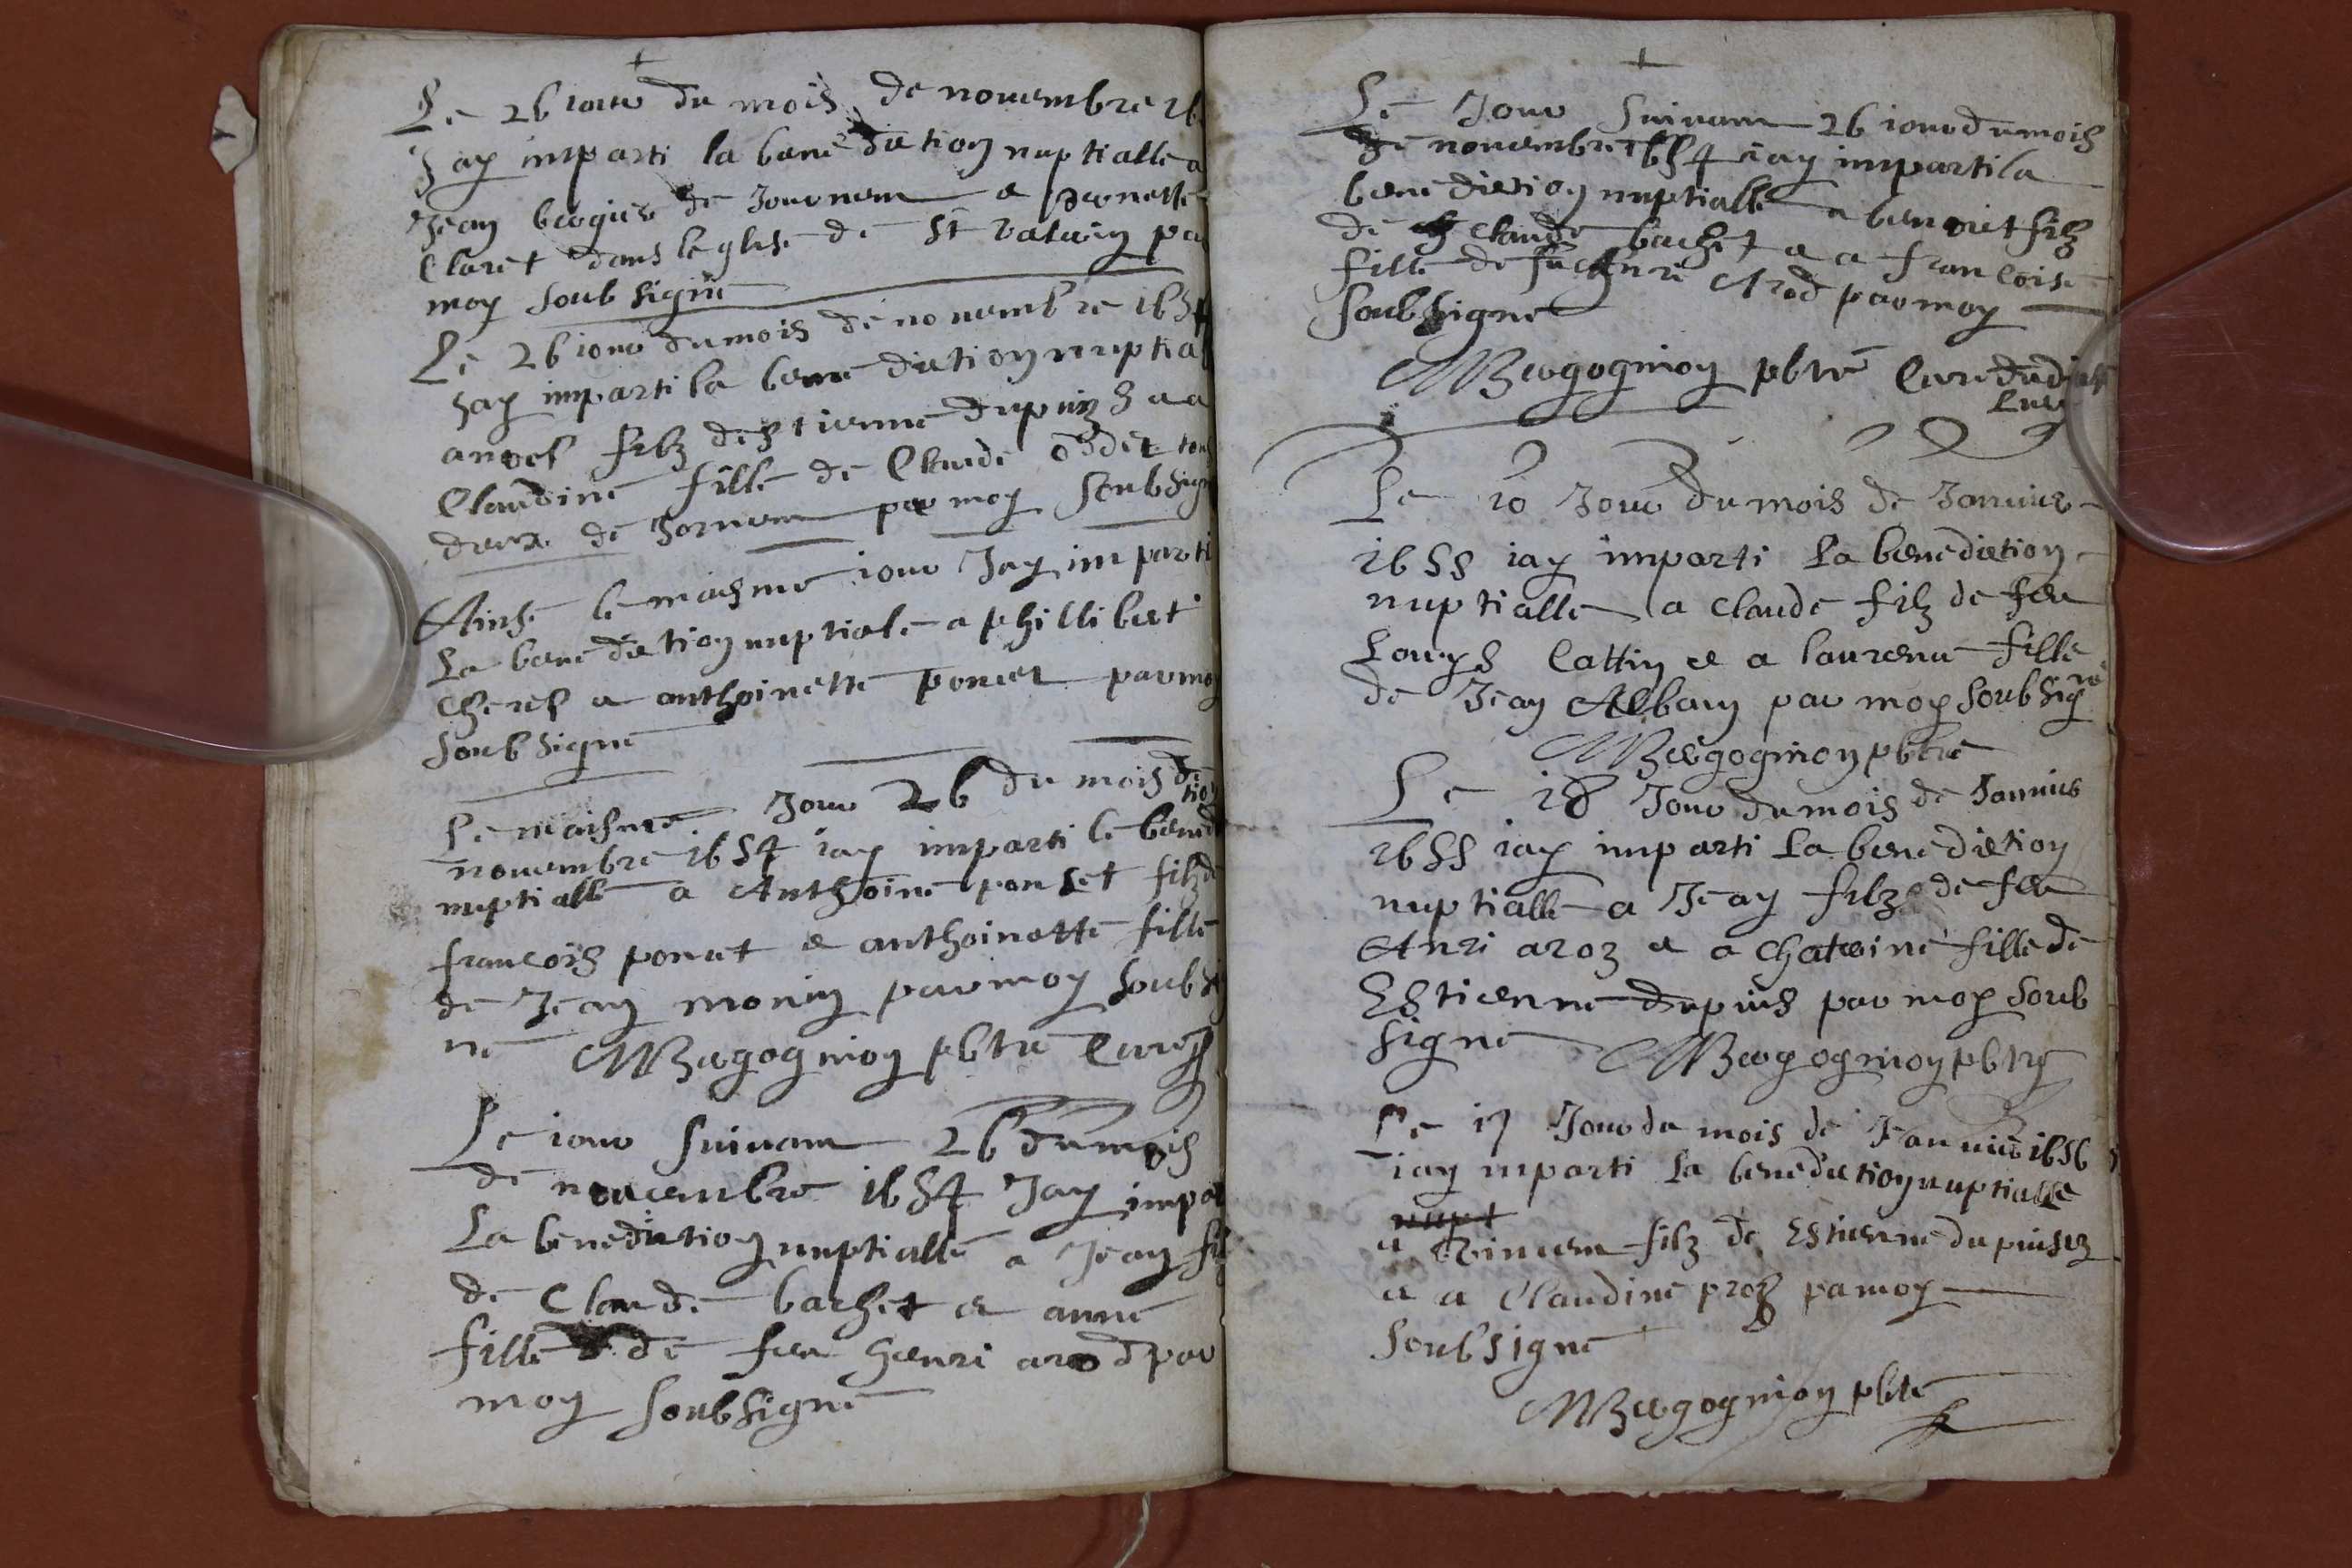 Le 26 iour du mois de nouembre 16
Jay imparti la benediction nuptialle a
Jean brogier de Jouonem e pernette
Claret dans leglise de St valerin par
moy soubsigne
Le 26 iour du mois de nouembre 1654
Jay imparti la benediction nuptial
filz destienne dupuiz e a a
Claudine fille de Claude oddet tou
deux de Jornem par moy soubsign
Ainse le maisme iour Jay imparti
La benediction nuptiale a phillibert
e anthoinette poncet par moy
soubsigne
Le maisme Jour 26 du mois de
nouembre 1654 iay imparti le benedi tion
nuptialle a Anthoine ponset filz de
francois poncet e anthoinette fille
de Jean monin par moy soubsi
ne MBergognion pbtre Cure
Le iour suiuant 26 du mois
de nouembre 1654 Jay impar
La benediction nuptialle a Jean fil
de Claude bachet e anne
fille de feu henri arod par
moy soubsigne
Le Jour suiuant 26 iour du mois
de nouembre 1654 iay imparti la
benediction nuptialle a benoict filz
de Claude bachet e a francoise
fille de fu Anri Arod par moy
soubsigne
MBergognion pbtre Cure dudict
Lieu
Le 10 Jour du mois de Januier
1655 iay imparti La benediction
nuptialle a Claude filz de feu
Louys Cattin e a laurence fille
de Jean Alban par moy soubsigne
MBergognion pbtre
Le 18 Jour du mois de Januier
1655 iay imparti La benediction
nuptialle a Jean filz de feu
Anri aroz e a Chaterine fille de
Estienne dupuis par moy soub
signe MBergognion pbtre
Le 17 Jour du mois de Januier 1656
iay inparti La benediction nuptialle
nupt
a Vincent filz de Estienne dupuisez
e a Claudine proz pa moy
soubsigne
MBergognion pbtre